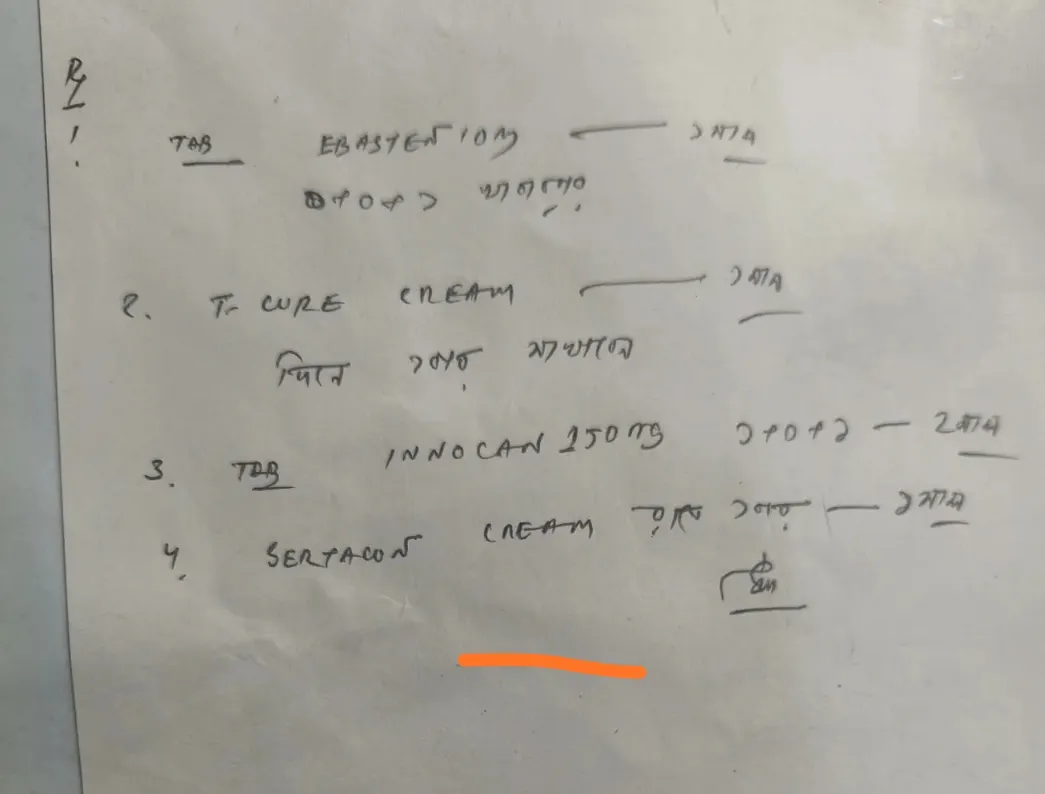 Rx
1. TAB EBASTEN 10 mg — ১ মাস
০+০+১
2. T-CURE CREAM — ১ মাস
দিনে মাখাবেন
3. TAB INNOCAN 150 mg ১+০+১ — ২ মাস
4. SERTACON CREAM — ১ মাস